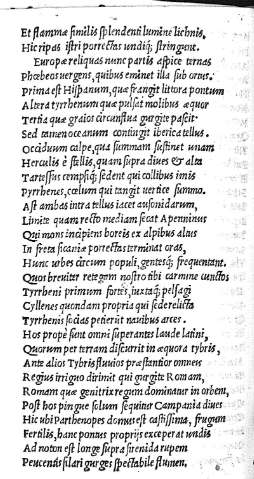 Et flammæ similis splendenti lumine lichnis,
Hic ripas istri porrectas undiq; stringent.
Europæ reliquas nunc partis aspice ternas
Phœbeos uergens, quibus eminet illa sub ortus.
prima est Hispanum, quæ frangit littora pontum
Altera tyrrhenum quæ pulsat molibus æquor
Tertia quæ graios circunflua gurgite pascit.
Sed tamen oceanum contingit iberica tellus.
Occiduum calpe, qua summam sustinet unam
Herculis è stellis, quam supra diues & alta
Tartessus cempsiq; sedent qui collibus imis
Pyrrhenes, cœlum qui tangit uertice summo.
Ast ambas intra tellus iacet ausonidarum,
Limite quam recto mediam secat Apenninus
Qui mons incipiens boreis ex alpibus altus
In freta sicaniæ porrectas terminat oras,
Hunc urbes circum populi, gentesq; frequentant.
Quos breuiter retegem nostro tibi carmine cunctos
Tyrrheni primum fortes, iuxtaq; pelasgi
Cyllenes quondam propria qui sede relicta
Tyrrhenis socias petierut nauibus arces.
Hos prope sunt omni superantes laude latini,
Quorum per terram discurrit in æquora tybris,
Ante alios Tybris fluuios præstantior omneis
Regius irriguo dirimit qui gurgite Romam,
Romam quæ genitrix regum dominatur in orbem,
Post hos pingue solum sequitur Campania diues
Hic ubi Parthenopes domus est castissima, frugum
Fertilis, hanc pontus proprijs exceperat undis
Ad noton est longe supra sirenida rupem
Peucentis ilari gurges spectabile flumen,